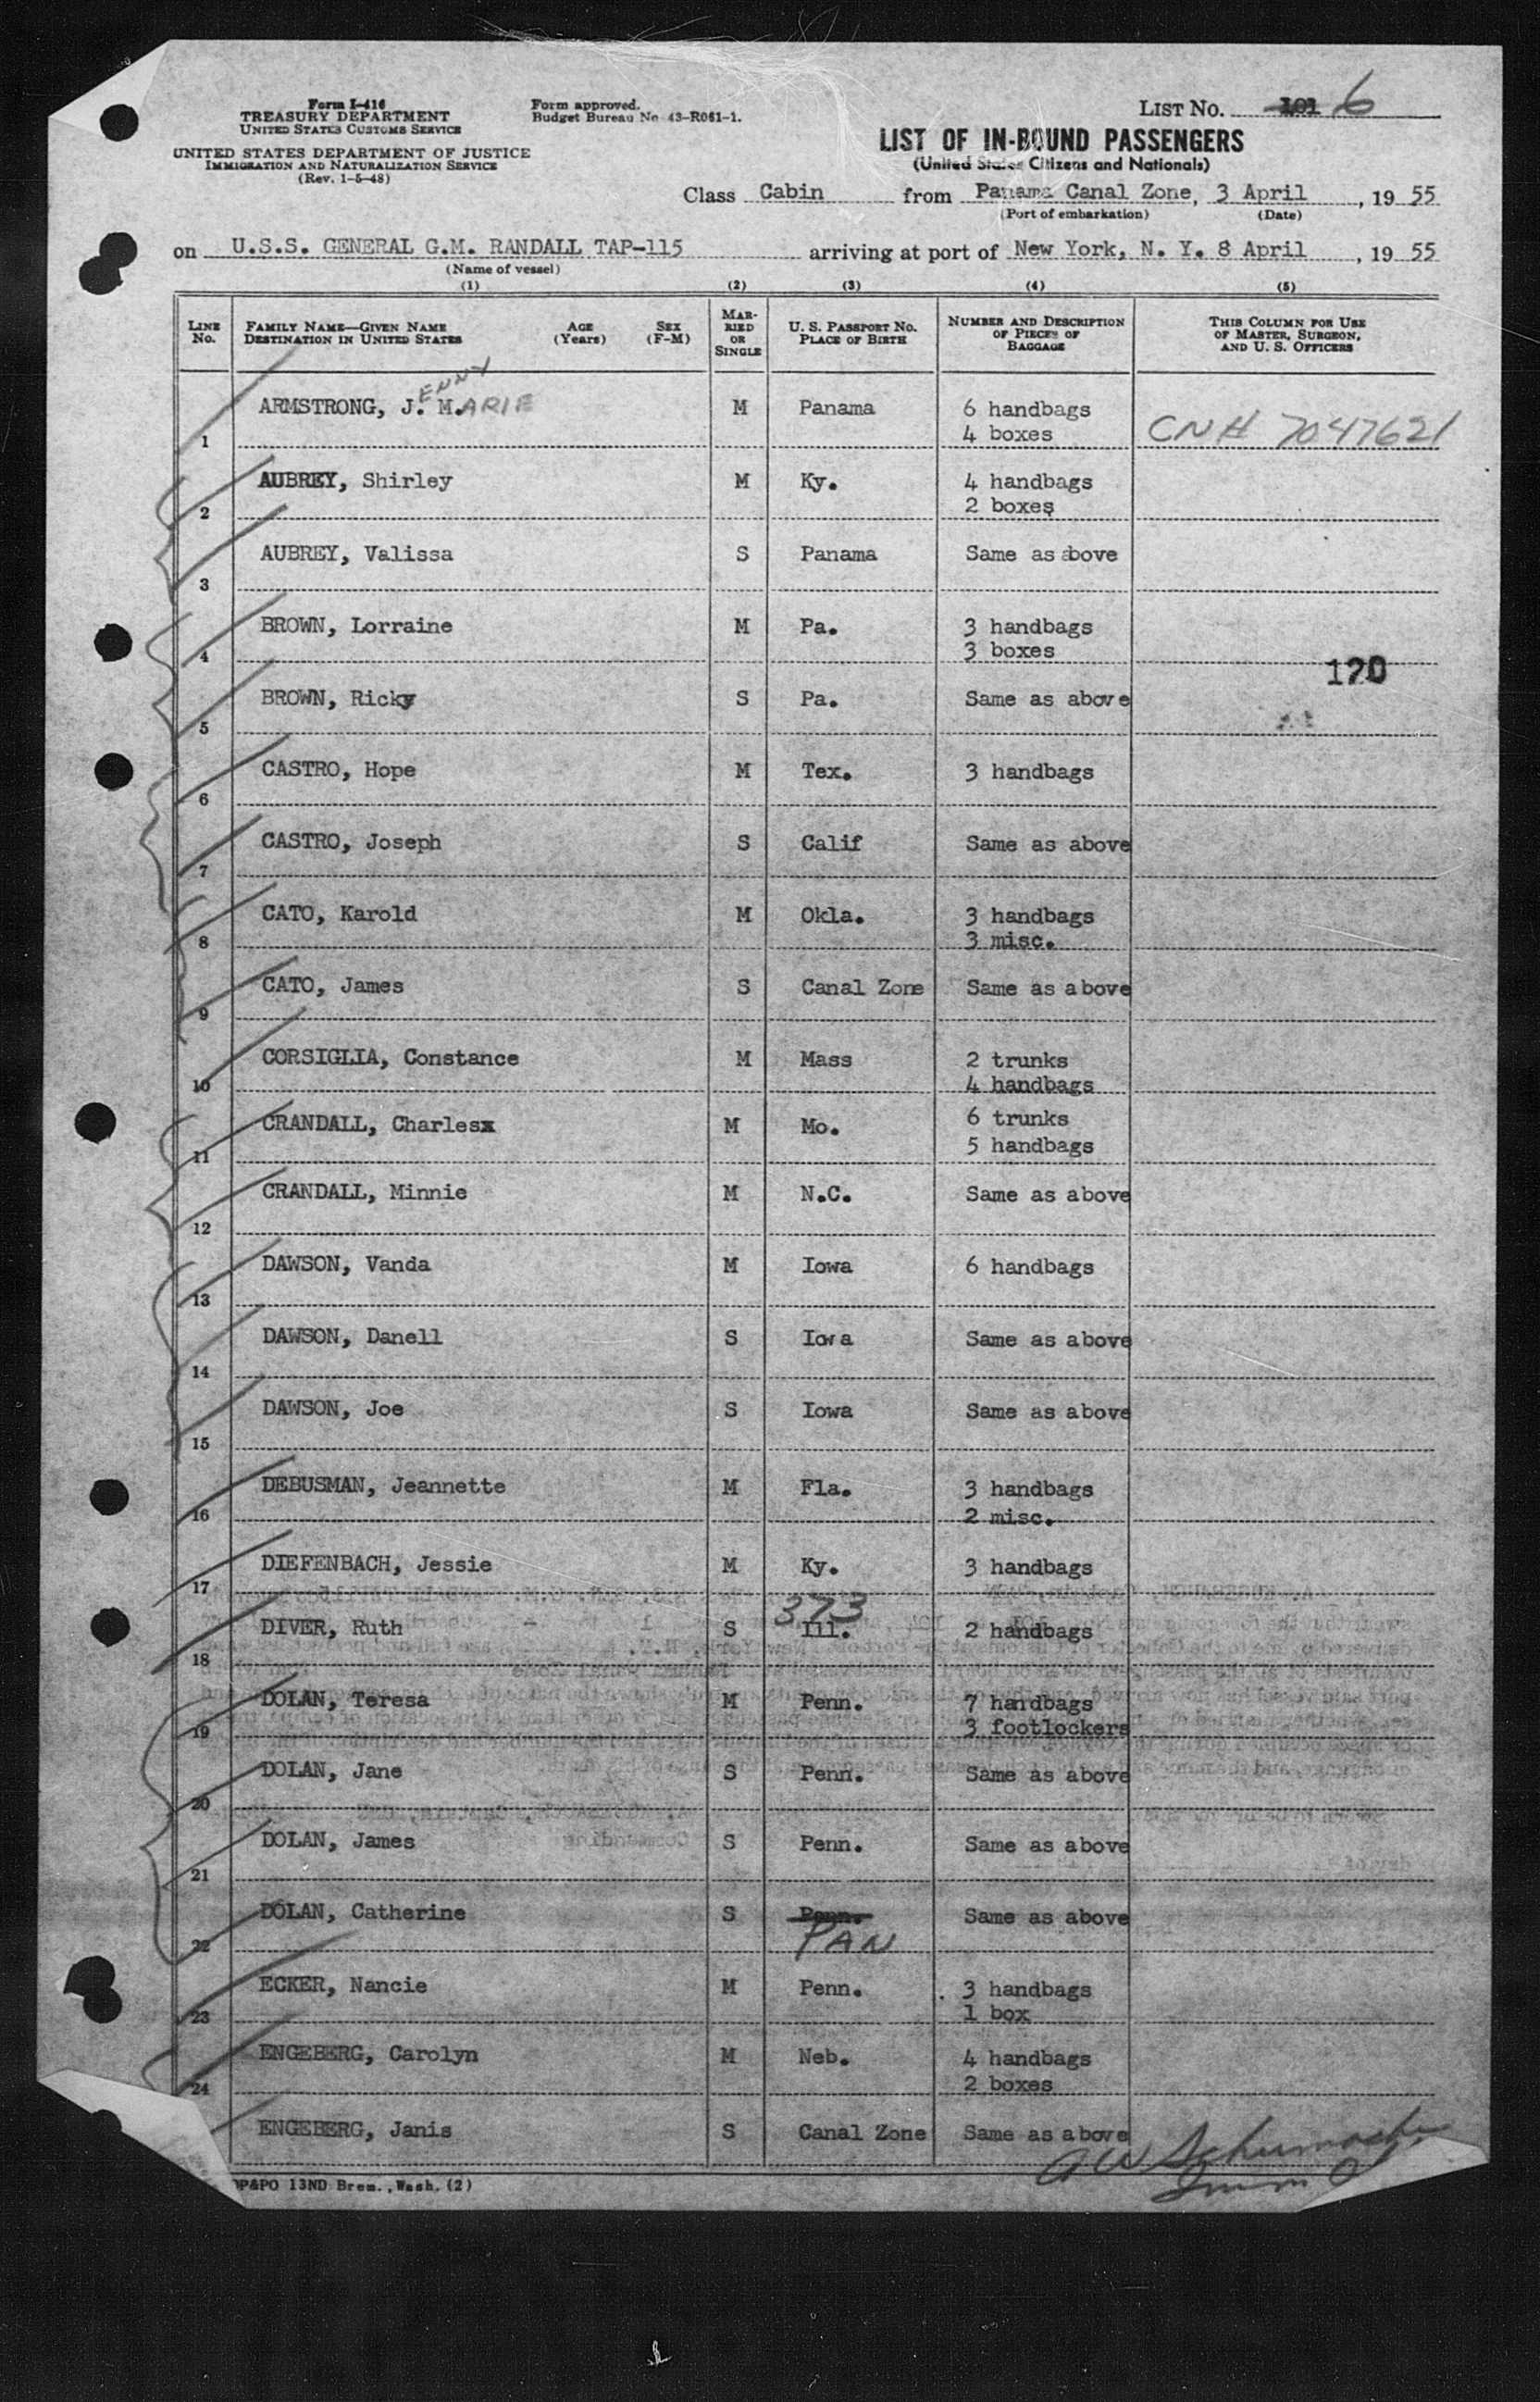 Form I-416
TREASURY DEPARTMENT
UNITED STATES CUSTOMS SERVICE
UNITED STATES DEPARTMENT OF JUSTICE
IMMIGRATION AND NATURALIZATION SERVICE
(Rev. 1-5-48)
Form approved.
Budget Bureau No 43-R061-1.
LIST No. 101 6
LIST OF IN-BOUND PASSENGERS
(United States Citizens and Nationals)
Class Cabin from Panama Canal Zone, 3 April, 19 55
(Port of embarkation) (Date)
on U.S.S. GENERAL G.M. RANDALL TAP-115 arriving at port of New York, N. Y. 8 April, 19 55
(Name of vessel)
(1) (2) (3) (4) (5)
LINE No. FAMILY NAME—GIVEN NAME DESTINATION IN UNITED STATES AGE (Years) SEX (F-M) MARRIED OR SINGLE U. S. PASSPORT No. PLACE OF BIRTH NUMBER AND DESCRIPTION OF PIECES OF BAGGAGE THIS COLUMN FOR USE OF MASTER, SURGEON, AND U. S. OFFICERS
1 ARMSTRONG, J.ENNY M.ARIE M Panama 6 handbags
4 boxes CN# 7047621
2 AUBREY, Shirley M Ky. 4 handbags
2 boxes
3 AUBREY, Valissa S Panama Same as above
4 BROWN, Lorraine M Pa. 3 handbags
3 boxes
120
5 BROWN, Ricky S Pa. Same as above
6 CASTRO, Hope M Tex. 3 handbags
7 CASTRO, Joseph S Calif Same as above
8 CATO, Karold M Okla. 3 handbags
3 misc.
9 CATO, James S Canal Zone Same as above
10 CORSIGLIA, Constance M Mass 2 trunks
4 handbags
11 CRANDALL, Charlesx M Mo. 6 trunks
5 handbags
12 CRANDALL, Minnie M N.C. Same as above
13 DAWSON, Vanda M Iowa 6 handbags
14 DAWSON, Danell S Iowa Same as above
15 DAWSON, Joe S Iowa Same as above
16 DEBUSMAN, Jeannette M Fla. 3 handbags
2 misc.
17 DIEFENBACH, Jessie M Ky. 3 handbags
373
18 DIVER, Ruth S Ill. 2 handbags
19 DOLAN, Teresa M Penn. 7 handbags
3 footlockers
20 DOLAN, Jane S Penn. Same as above
21 DOLAN, James S Penn. Same as above
22 DOLAN, Catherine S Penn. Same as above
PAN
23 ECKER, Nancie M Penn. 3 handbags
1 box
24 ENGEBERG, Carolyn M Neb. 4 handbags
2 boxes
ENGEBERG, Janis S Canal Zone Same as above
AW Schumacher
P&PO 13ND Brem., Wash. (2)